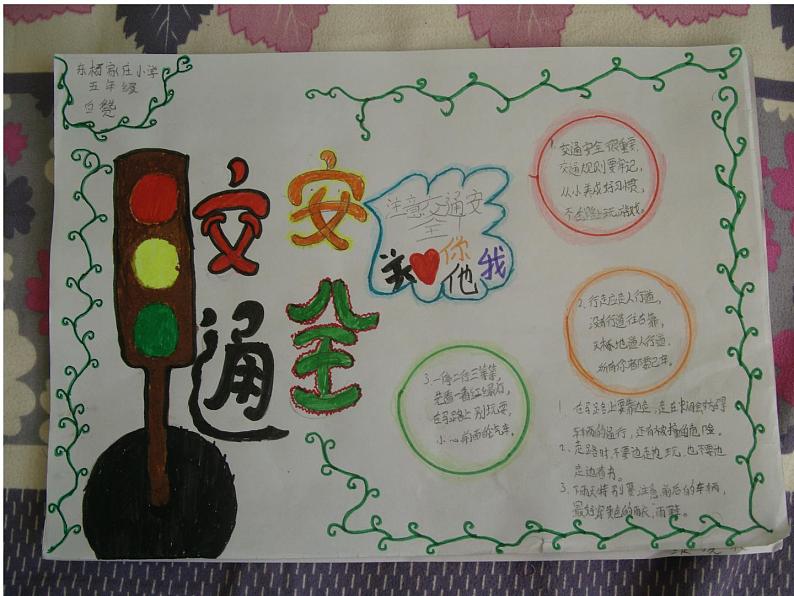 东杨家庄小学
五年级
交通
安全
注意交通安
全
关你
他我
1、交通安全很重要,
交通规则要牢记,
从小养成好习惯,
不在路上玩游戏。
2、行走应走人行道,
没有行道往右靠,
天桥地道人行道,
3、一停二看三等等,
先看一看红绿灯,
在马路上别玩耍,
小心前面的汽车。
1、在马路上要靠边走,走在中间会妨碍
车辆的运行,还有被撞的危险。
2、走路时,不要边走边玩,也不要边
走边看书。
3、下雨天特别要注意前后的车辆,
最好穿黄色的雨衣,雨鞋。